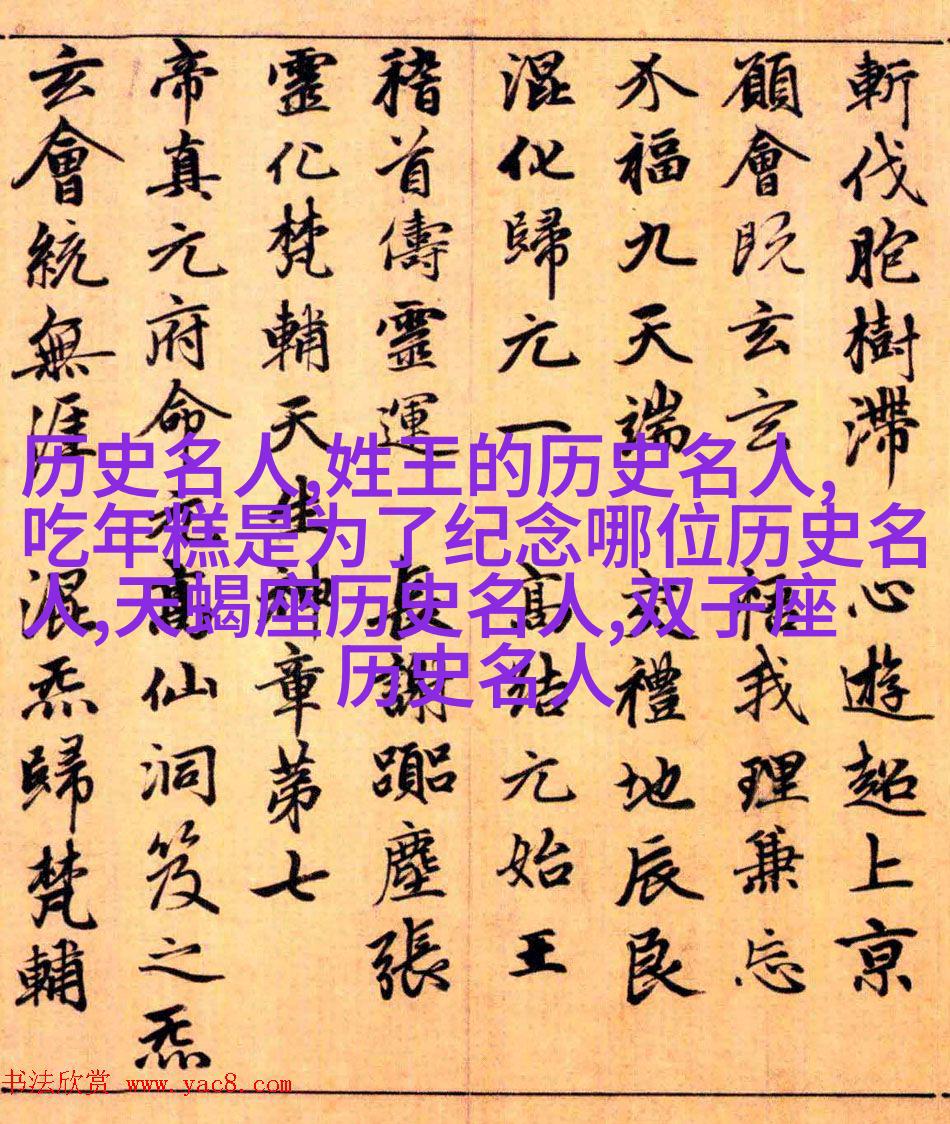 斬伐胞樹滯 心遊超上京
願會既玄玄 悟我理兼忘
介福九天端 交禮地辰良
混化歸元一 高結元始王
稽首儔靈運 長謝塵張
靈化梵輔天生神章第七
帝真元府命元高仙洞笈之炁
玄會統無涯混炁歸梵輔
历史名人,姓王的历史名人,
吃年糕是为了纪念哪位历史名
人,天蝎座历史名人,双子座
历史名人
书法欣赏 www.yac8.com